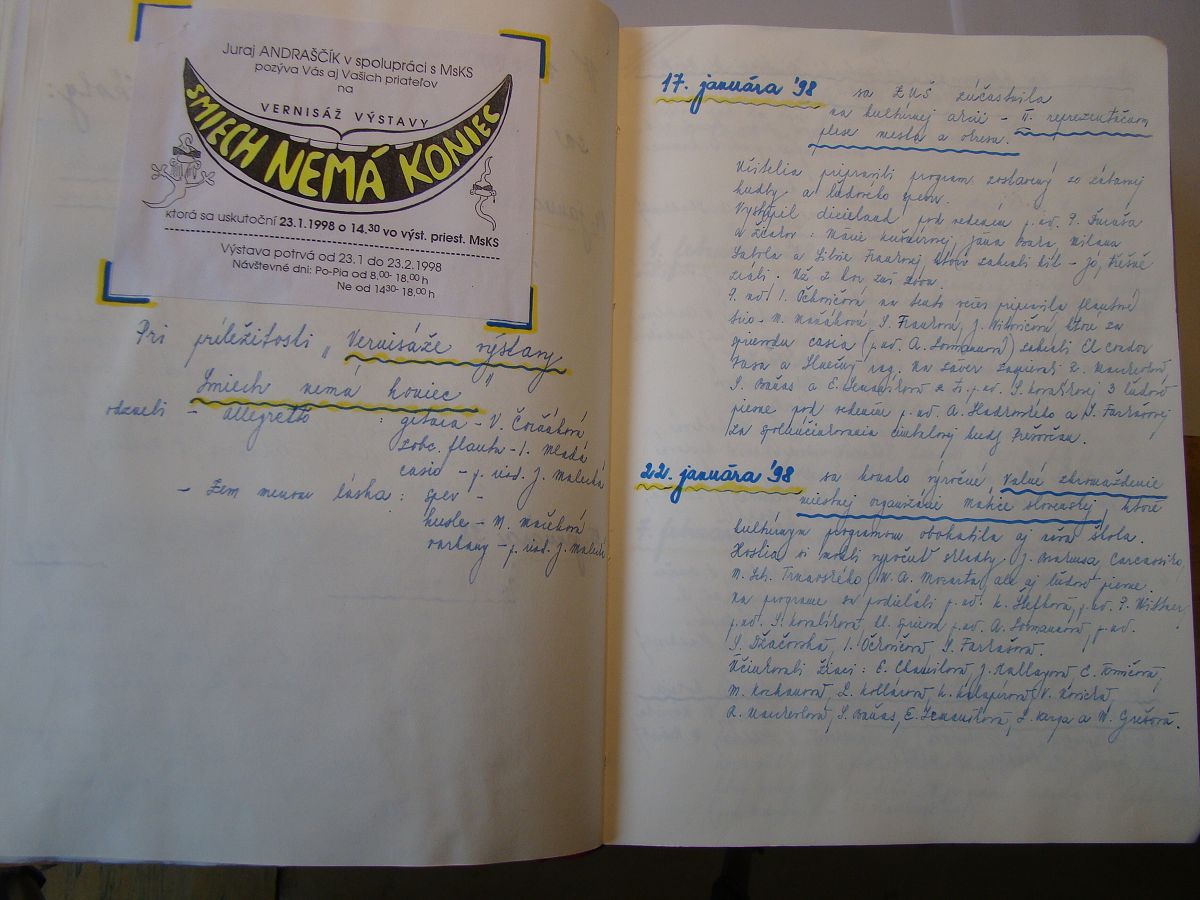 Juraj ANDRAŠČÍK v spolupráci s MsKS
pozýva Vás aj Vašich priateľov
na
VERNISÁŽ VÝSTAVY
SMIECH NEMÁ KONIEC
ktorá sa uskutoční 23.1.1998 o 14.30 vo výst. priest. MsKS
Výstava potrvá od 23.1 do 23.2.1998
Návštevné dni: Po-Pia od 8.00- 18.00 h
Ne od 1430- 18.00 h
Pri príležitosti „Vernisáže výstavy
Smiech nemá koniec"
odzneli - allegretto : gitara - V. Čorňáková
zobc. flauta - I. Mladá
casio - p. ried. J. Malecká
- Zem menom láska : spev -
husle - M. Maťková
varhany - p. ried. J. Malecká
17. januára '98 sa ZUŠ zúčastnila
na kultúrnej akcii - II. reprezentačnom
plese mesta a okresu.
Učitelia pripravili program zostavený zo zábavnej
hudby a ľudového spevu.
Vystúpil dixieland pod vedením p. uč. P.
a žiakov : Márie Kušnírovej, Jána Milana
a Silvie Fraukovej ktorí zahrali hit - Jó, třešně
zrály.
P. uč. I. Očkovičová na tento večer pripravila flautové
trio - M. Maťáková, S. Frauková, J. Witkovičová, ktoré za
sprievodu casia (p. uč. A. Lormanová) zahrali El condor
pasa a Slnečný rag. Na záver zaspievali R. Mauherlová,
S. Baňas a E. Zemaníková z tr. p. uč. S. Kovalíkovej 3 ľudové
piesne pod vedením p. uč. A. Hudrovského a S. Farkašovej
za spoluúčinkovania cimbalovej hudby Prešovčan.
22. januára '98 sa konalo výročné Valné zhromaždenie
miestnej organizácie matice slovenskej, ktoré
kultúrnym programom obohatila aj naša škola.
Hostia si mohli vypočuť skladby J. Carcassiho
M. Sch. Trnavského, W. A. Mozarta, ale aj ľudové piesne.
Na programe sa podieľali p. uč. K. Šefková, p. uč. P. Wittner,
p. uč. S. Kovalíková, kl. sprievod p. uč. A. Lormanová, p. uč.
S. Džačovská, I. Očkovičová, S. Farkašová.
Účinkovali žiaci : E. Chomilová, J. Kallayová, C. Tomičová,
M. Kochanová, L. Kollárová, K. V.
R. Mauherlová, S. Baňas, E. Zemaníková, L. a M. Grešová.